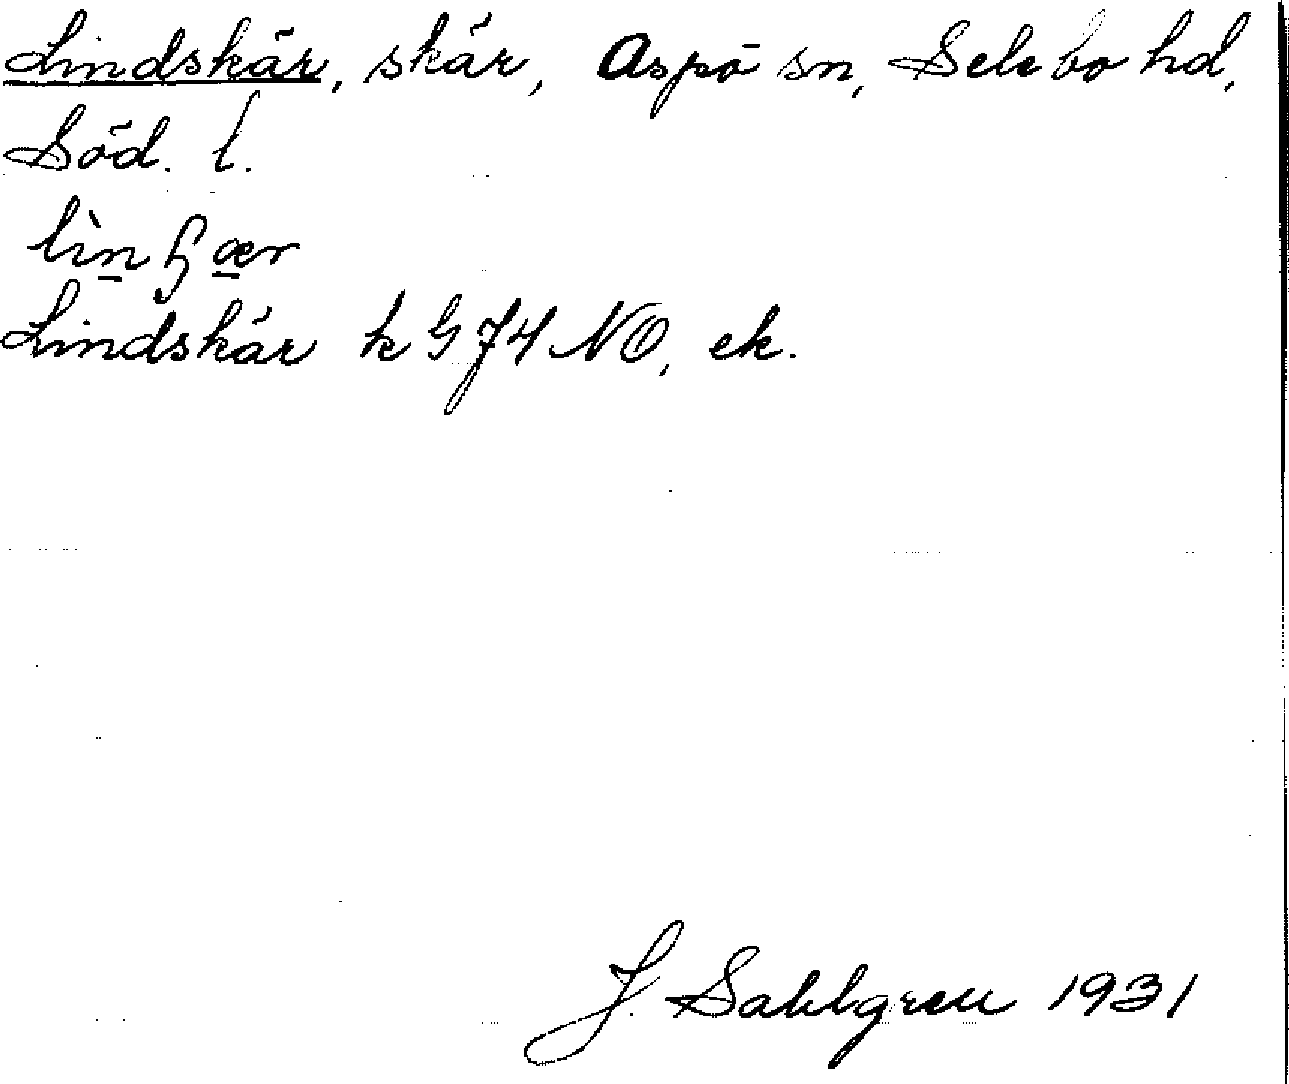 Lindskär, skär, Aspö sn, Selebo hd,
Söd. l.
lìnɧær
Lindskär k G 74 NO, ek.
J. Sahlgren 1931